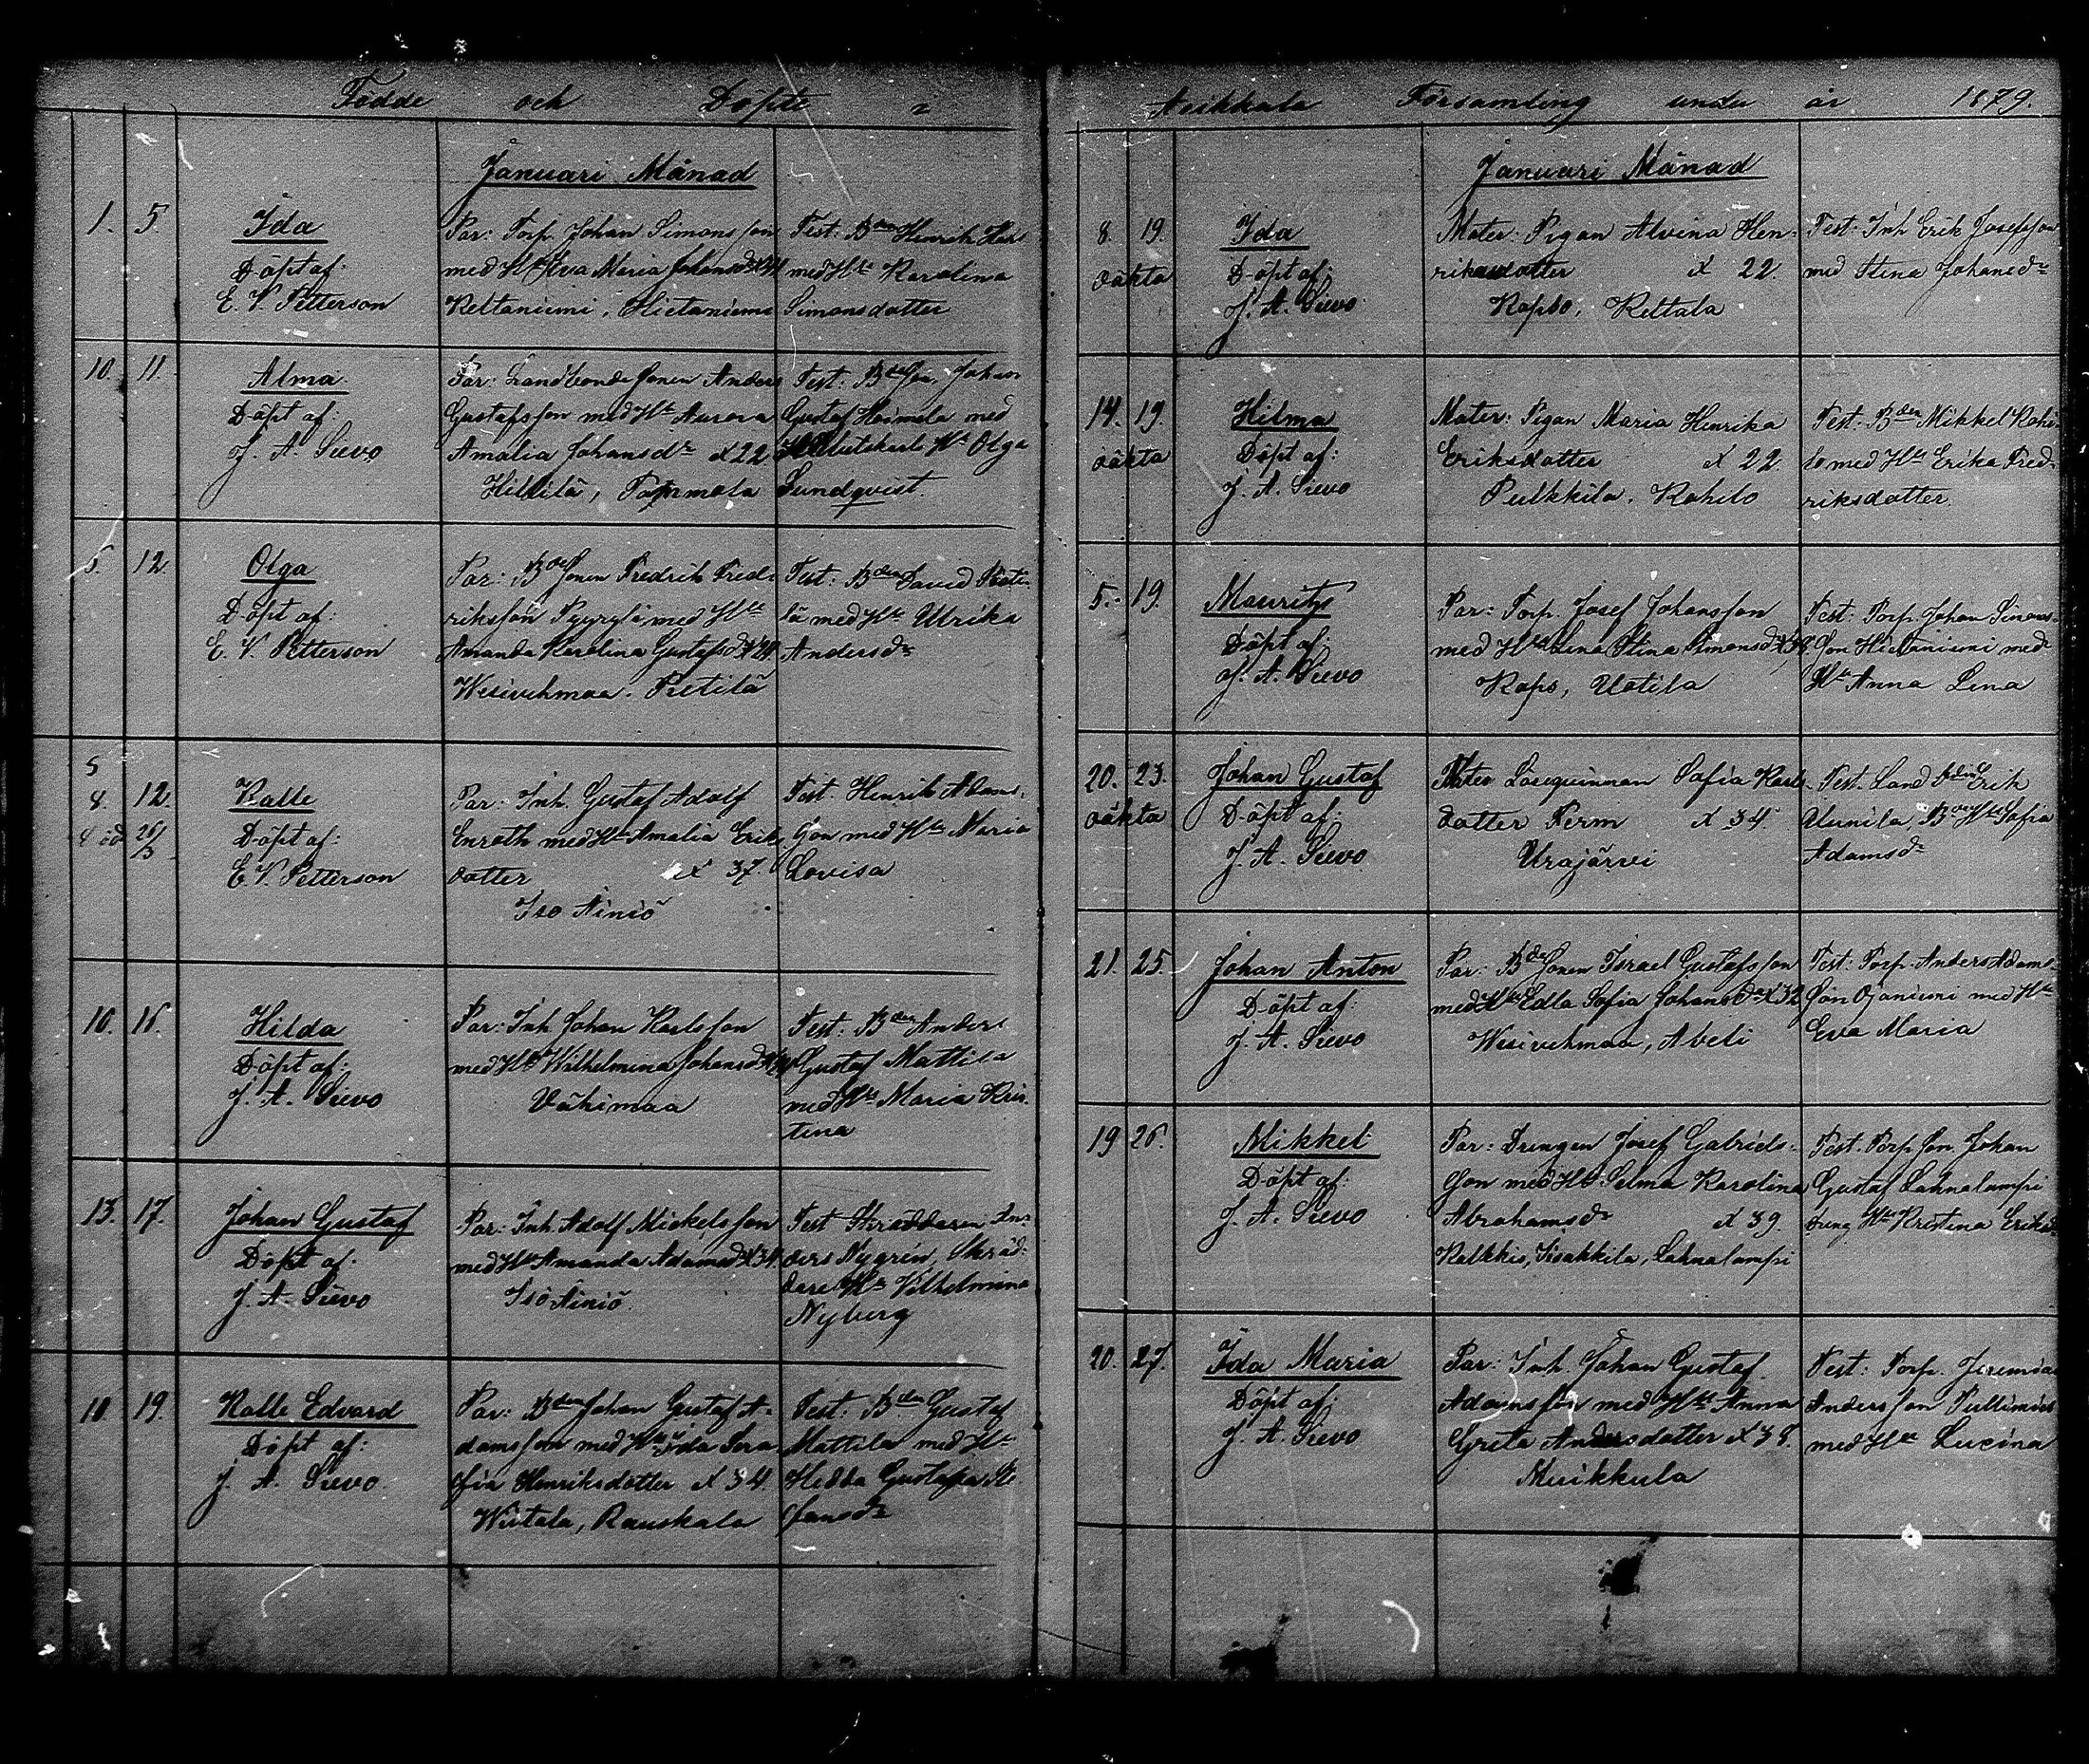 Födde och Döpte i
Januari Månad
1. 5. Ida
Döpt af:
E. V. Petterson
Par: Torp. Johan Simonsson
med Hu Eva Maria Johansdr
Keltaniemi, Hietaniemi
Test: Bden Henrik
med Hu Karolina
Simonsdotter
10. 11. Alma
Döpt af:
J. A. Sievo
Par: Landbondesonen Anders
Gustafsson med Hu Aurora
Amalia Johansdr x 22
Hillilä,
Test: Bdeson. Johan
Gustaf Heimola med
Hu Olga
Lundqvist.
5. 12. Olga
Döpt af:
E. V. Petterson
Par: Bdesonen Fredrik Fred-
riksson Pyyrylä med Hu
Amanda Karolina Gustafsdr
Wesivehmaa. Pietilä
Test: Bden David
lä med Hu Ulrika
Andersdr
5
8. 12. Kalle
död 26/3
Döpt af:
E. V. Petterson
Par: Inh. Gustaf Adolf
Enroth med Hu Amalia Eriks
dotter x 37.
Iso Äiniö
Test. Henrik Adams-
son med Hu Maria
Lovisa
10. 16. Hilda
Döpt af:
J. A. Sievo
Par: Inh. Johan Karlsson
med Hu Wilhelmina Johansdr
Vähimaa
Test: Bden Anders
Gustaf Mattila
med Hu Maria Kris-
tina
13. 17. Johan Gustaf
Döpt af:
J. A. Sievo
Par: Inh. Adolf Mickelsson
med Hu Amanda Adamsdr x 34.
Iso Äiniö
Test Skräddaren An-
ders Nygrén, Skräd-
dare Hu Vilhelmina
Nyberg
10 19. Kalle Edvard
Döpt af:
J. A. Sievo.
Par: Bden Johan Gustaf A-
damsson med Hu Ida Sera
fia Henriksdotter x 34.
Wiitala, Rauskala
Test: Bden Gustaf
Mattila med Hu
Hedda Gustafva Ste
fansdr
Asikkala Församling under år 1879.
Januari Månad
8. 19. Ida
oäkta
Döpt af:
J. A. Sievo
Mater: Pigan Alvina Hen-
riksdotter x 22.
Rapso, Keltala
Test: Inh. Erik Josefsson
med Stina Johansdr
14. 19. Hilma
oäkta
Döpt af:
J. A. Sievo
Mater: Pigan Maria Henrika
Eriksdotter x 22.
Pulkkila. Kohilo
Test: Bden Mikkel Kohi-
lo med Hu Erika Fred-
riksdotter.
5. 19. Mauritz
Döpt af:
J. A. Sievo
Par: Torp. Josef Johansson
med Hu Lena Stina Simonsdr x 38.
Raps, Uotila
Test: Torp. Johan Simons-
son Hietaniemi med
Hu Anna Lena
20. 23. Johan Gustaf
oäkta
Döpt af:
J. A. Sievo
Mater Lösqvinnan Sofia Karls-
dotter Ferm x 34.
Urajärvi
Test. Landbden Erik
Uunila Bde Hu Sofia
Adamsdr
21. 25. Johan Anton
Döpt af:
J. A. Sievo
Par: Bdesonen Israel Gustafsson
med Hu Edla Sofia Johansdr x 32
Wesivehmaa, Abeli
Test: Torp. Anders Adams-
son Ojaniemi med Hu
Eva Maria
19 26. Mikkel
Döpt af:
J. A. Sievo
Par: Drengen Josef Gabriels-
son med Hu Selma Karolina
Abrahamsdr x 39.
Kalkkis, Iisakkila, Lahnalampi
Test. Torpson. Johan
Gustaf Lahnalampi
dreng Hu Kristina Eriksdr
20. 27. Ida Maria
Döpt af:
J. A. Sievo
Par: Inh. Johan Gustaf
Adamsson med Hu Anna
Greta Andersdotter x 38.
Muikkula
Test: Torp. Jeremias
Andersson
med Hu Lucina